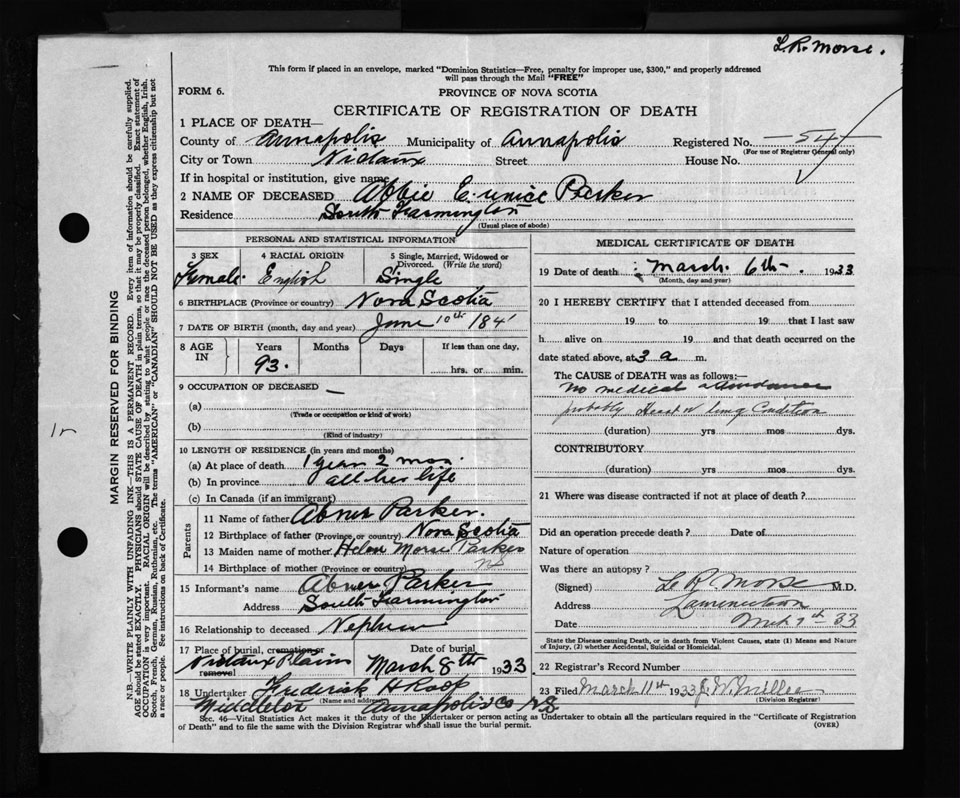 L.R. Morse.
This form if placed in an envelope, marked "Dominion Statistics—Free, penalty for improper use, $300," and properly addressed
will pass through the Mail "FREE"
FORM 6.
PROVINCE OF NOVA SCOTIA
CERTIFICATE OF REGISTRATION OF DEATH
1 PLACE OF DEATH—
County of Annapolis Municipality of Annapolis Registered No. 54
(For use of Registrar General only)
City or Town Nictaux Street House No.
If in hospital or institution, give name
2 NAME OF DECEASED Abbie Eunice Parker
Residence South Farmington
(Usual place of abode)
PERSONAL AND STATISTICAL INFORMATION
3 SEX 4 RACIAL ORIGIN 5 Single, Married, Widowed or
Divorced. (Write the word)
Female. English Single
6 BIRTHPLACE (Province or country) Nova Scotia
7 DATE OF BIRTH (month, day and year) June 10th 184
8 AGE IN Years Months Days If less than one day,
93. hrs. or min.
9 OCCUPATION OF DECEASED —
(a)
(Trade or occupation or kind of work)
(b)
(Kind of industry)
10 LENGTH OF RESIDENCE (in years and months)
(a) At place of death 1 year 2 mos.
(b) In province all her life
(c) In Canada (if an immigrant)
Parents
11 Name of father Abner Parker.
12 Birthplace of father (Province or country) Nova Scotia
13 Maiden name of mother Helen Morse Parker
14 Birthplace of mother (Province or country)
15 Informant's name Abner Parker
Address South Farmington
16 Relationship to deceased Nephew
17 Place of burial, cremation or removal Date of burial
Nictaux Plains March 8th 1933
18 Undertaker Frederick H Roop
(Name and address)
Middleton Annapolis Co N.S
MEDICAL CERTIFICATE OF DEATH
19 Date of death March 6th. 1933
(Month, day and year)
20 I HEREBY CERTIFY that I attended deceased from
19 to 19 that I last saw
h alive on 19 and that death occurred on the
date stated above, at 3 a m.
The CAUSE of DEATH was as follows:—
No medical attendance
probably Heart or lung Condition
(duration) yrs mos dys.
CONTRIBUTORY
(duration) yrs. mos. dys.
21 Where was disease contracted if not at place of death?
Did an operation precede death? Date of
Nature of operation
Was there an autopsy?
(Signed) L R Morse M.D.
Address Lawrencetown
Date Mch 7th 33
State the Disease causing Death, or in death from Violent Causes, state (1) Means and Nature
of Injury, (2) whether Accidental, Suicidal or Homicidal.
22 Registrar's Record Number
23 Filed March 11th 1933 J.W. Miller
(Division Registrar)
Sec. 46—Vital Statistics Act makes it the duty of the Undertaker or person acting as Undertaker to obtain all the particulars required in the "Certificate of Registration
of Death" and to file the same with the Division Registrar who shall issue the burial permit. (OVER)
MARGIN RESERVED FOR BINDING
N.B.—WRITE PLAINLY WITH UNFADING INK—THIS IS A PERMANENT RECORD. Every item of information should be carefully supplied.
AGE should be stated EXACTLY. PHYSICIANS should STATE CAUSE OF DEATH in plain terms, so that it may be properly classified. Exact statement of
OCCUPATION is very important. RACIAL ORIGIN will be described by stating to what people or race the deceased person belonged, whether English, Irish,
Scotch, French, German, Russian, Ruthenian, etc. The terms "AMERICAN" or "CANADIAN" SHOULD NOT BE USED as they express citizenship but not
a race or people. See instructions on back of Certificate.